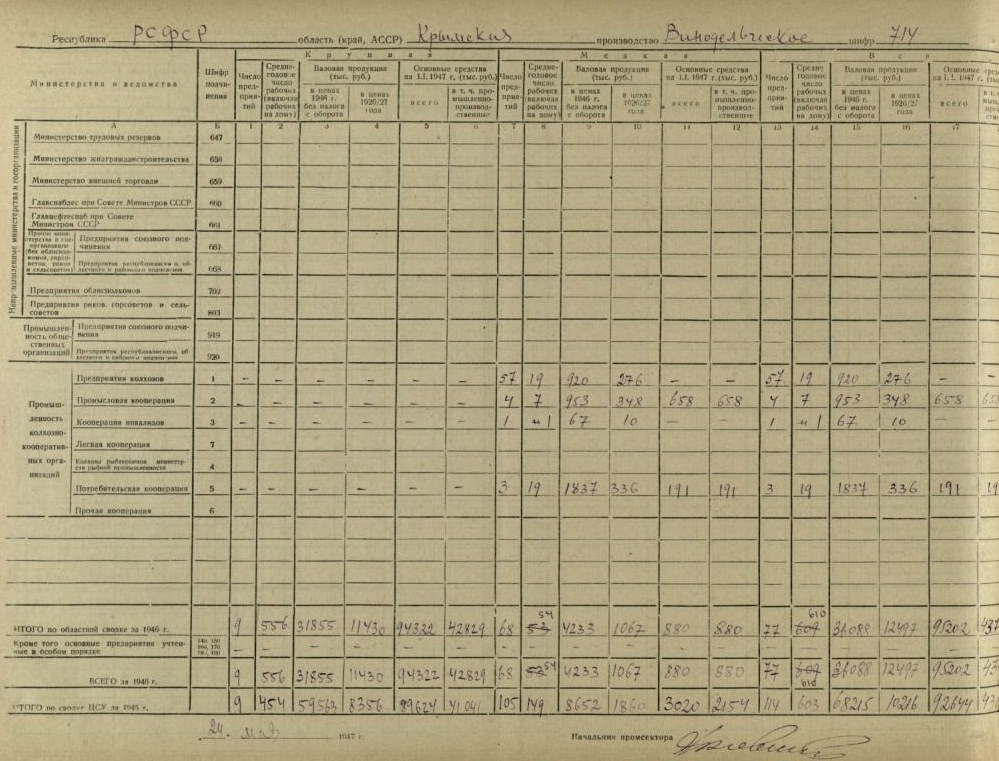 Республика РСФСР область (край, АССР) Крымская производство Винодельческое шифр 714
Министерства и ведомства
Шифр подчинения
Крупная
Мелкая
Число предприятий
Среднегодовое число рабочих (включая рабочих на дому)
Валовая продукция (тыс. руб.)
в ценах 1946 г. без налога с оборота
в ценах 1926/27 года
Основные средства на 1.I. 1947 г. (тыс. руб.)
всего
в т. ч. промышленно-производственные
Число предприятий
Среднегодовое число рабочих (включая рабочих на дому)
Валовая продукция (тыс. руб.)
в ценах 1946 г. без налога с оборота
в ценах 1926/27 года
Основные средства на 1.I. 1947 г. (тыс. руб.)
всего
в т. ч. промышленно-производственные
Число предприятий
Средне годовое число рабочих (включая рабочих на дому)
Валовая продукция (тыс. руб.)
в ценах 1946 г. без налога с оборота
в ценах 1926/27 года
всего
А Б 1 2 3 4 5 6 7 8 9 10 11 12 13 14 15 16 17
Министерство трудовых резервов 647
Министерство жилгражданстроительства 658
Министерство внешней торговли 659
Главснаблес при Совете Министров СССР 660
Главнефтеснаб при Совете Министров СССР 661
Предприятия союзного подчинения 667
668
Предприятия облисполкомов 702
Предприятия риков, горсоветов и сельсоветов 803
Промышленность общественных организаций
Предприятия союзного подчинения 919
920
Промышленность колхозно-кооперативных организаций
Предприятия колхозов 1 – – – – – – 57 19 920 276 – – 57 19 920 276 –
Промысловая кооперация 2 – – – – – – 4 7 953 348 658 658 4 7 953 348 658
Кооперация инвалидов 3 – – – – – – 1 67 10 – – 1 67 10 –
Лесная кооперация 7
4
Потребительская кооперация 5 – – – – – – 3 19 1837 336 191 191 3 19 1837 336 191
Прочая кооперация 6
ИТОГО по областной сводке за 1946 г. 9 556 31855 11430 94322 42829 68 54 4233 1067 880 880 77 610 36088 12497 95202
Кроме того основные предприятия учтенные в особом порядке – – – – – – – – – – – – – – – – –
ВСЕГО за 1946 г. 9 556 31855 11430 94322 42829 68 54 4233 1067 880 880 77 610 36088 12497 95202
ИТОГО по сводке ЦСУ за 1945 г. 9 454 59563 8356 89624 41041 105 149 8652 1860 3020 2154 114 603 68215 10216 92644
1947 г. Начальник промсектора